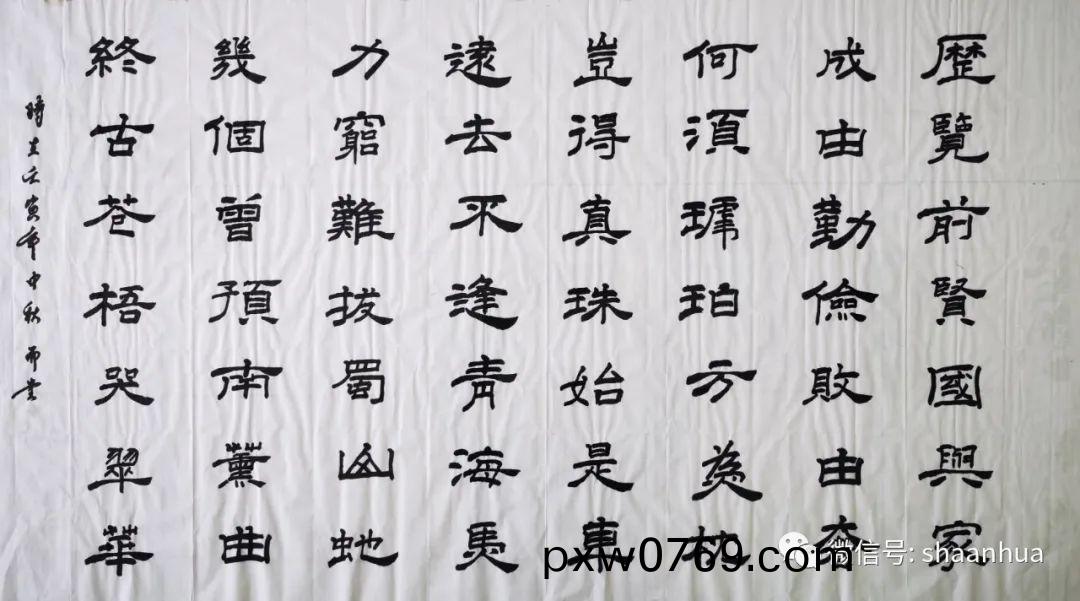 歷覽前賢國與家
成由勤儉敗由
何須琥珀方為枕
豈得真珠始是車
逮去不逢青海馬
力窮難拔蜀山虵
幾個曾預南薰曲
終古苍梧哭翠華
時在壬寅年中秋
pxw0769.com
微信号: shaanhua